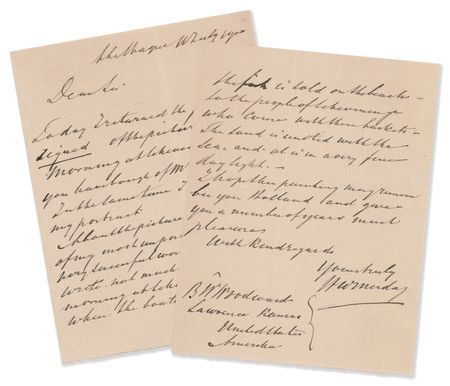 Dear Sir
To day I returned, the
signed of the pictur
Morning at
you have bough of M
In the same time I
my portrait
I should the picture
of my most
very succesful wor
wrote not much
morning at
when the boats
the fish is sold on the beach -
to the people of Scheveningen
who come with their baskets -
The sand is united with the
sea - and at is in a very fine
day light. -
I hope the painting may remem
ber you Holland and give
you a number of years much
pleasures
With Kind regards
Yours truly
HWMesdag
B. W. Woodward
Lawrence Kansas
United States
Amerika